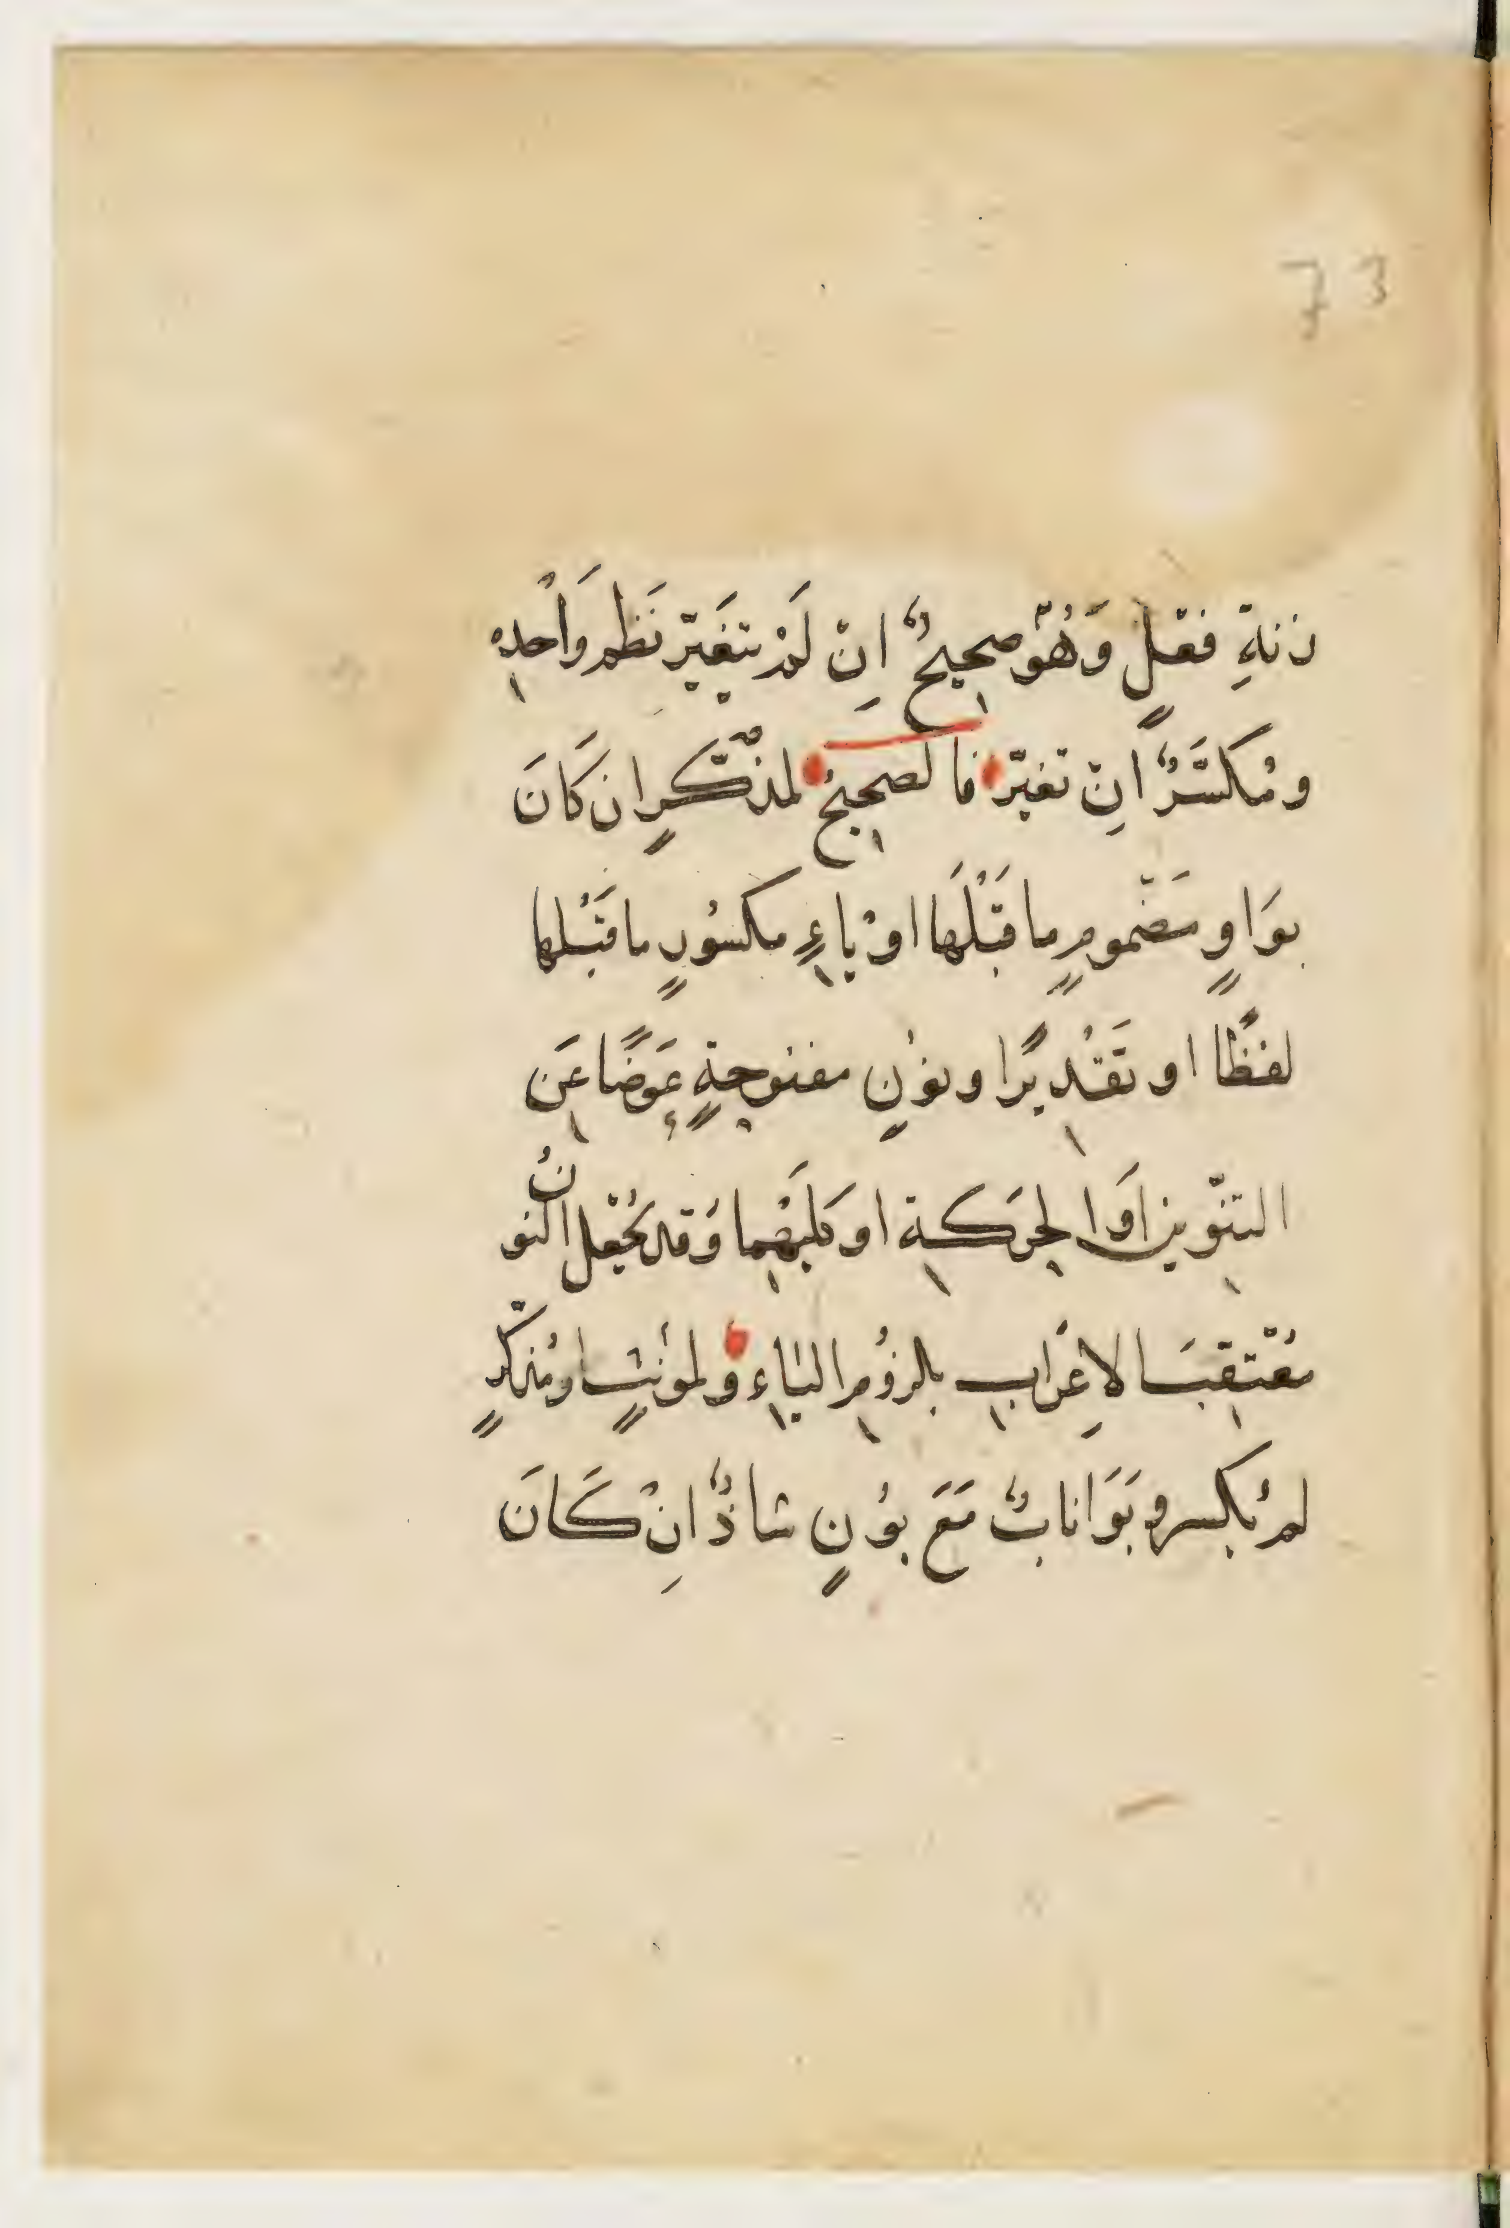 73
زنةِ فعلٍ وَهُوَ صحيحٌ اِن لَمْ يتغَيّر نَظم وَاْحدِهْ
ومُكسَّرٌ اِن تغيّر فالصحيحُ لمذَكّرٍ ان كَانَ
بوَاوٍ مَضّمومٍ ما قَبْلَهَا اوْ ياءٍ مكسُورٍ ما قَبْلها
لفظًا او تَقْديرًا ونوُنٍ مفتوحةٍ عِوَضًا عَن
التنّوين اَوالحرَكة او كلَيْهما وَقد يُجْعل النونُ
مُعْتقبَ الاِعْراب بلزوُم الياءِ ولمؤنثٍ او مُذكّرٍ
لم يُكسر وبَوَاناتٌ مَعَ بوُنٍ شاذٌّ اِنْ كَانَ